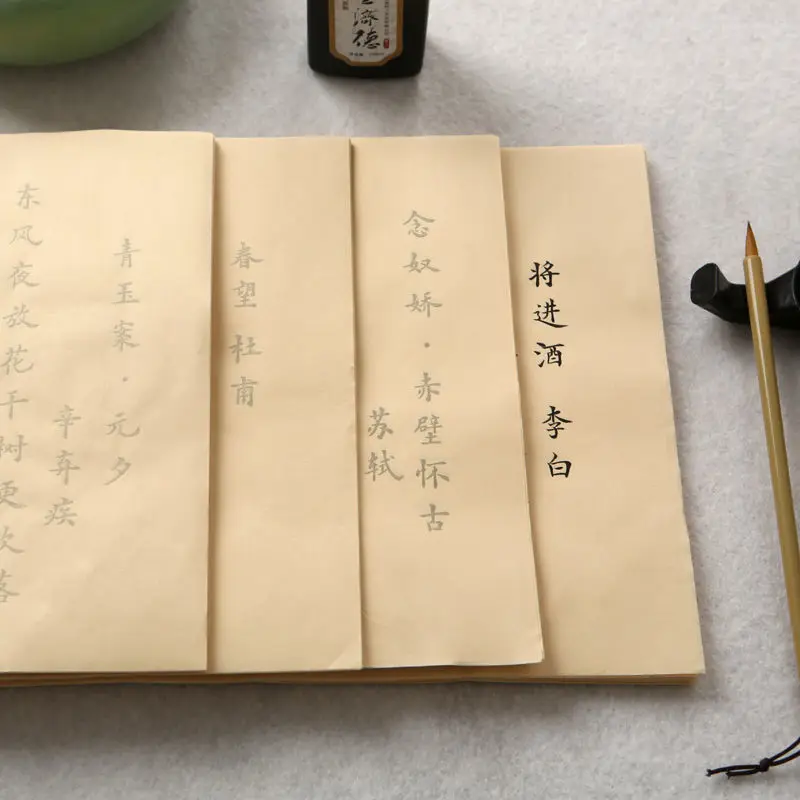 将进酒 李白
念奴娇·赤壁怀古
苏轼
春望 杜甫
青玉案·元夕
辛弃疾
东风夜放花千树更吹落
濟德